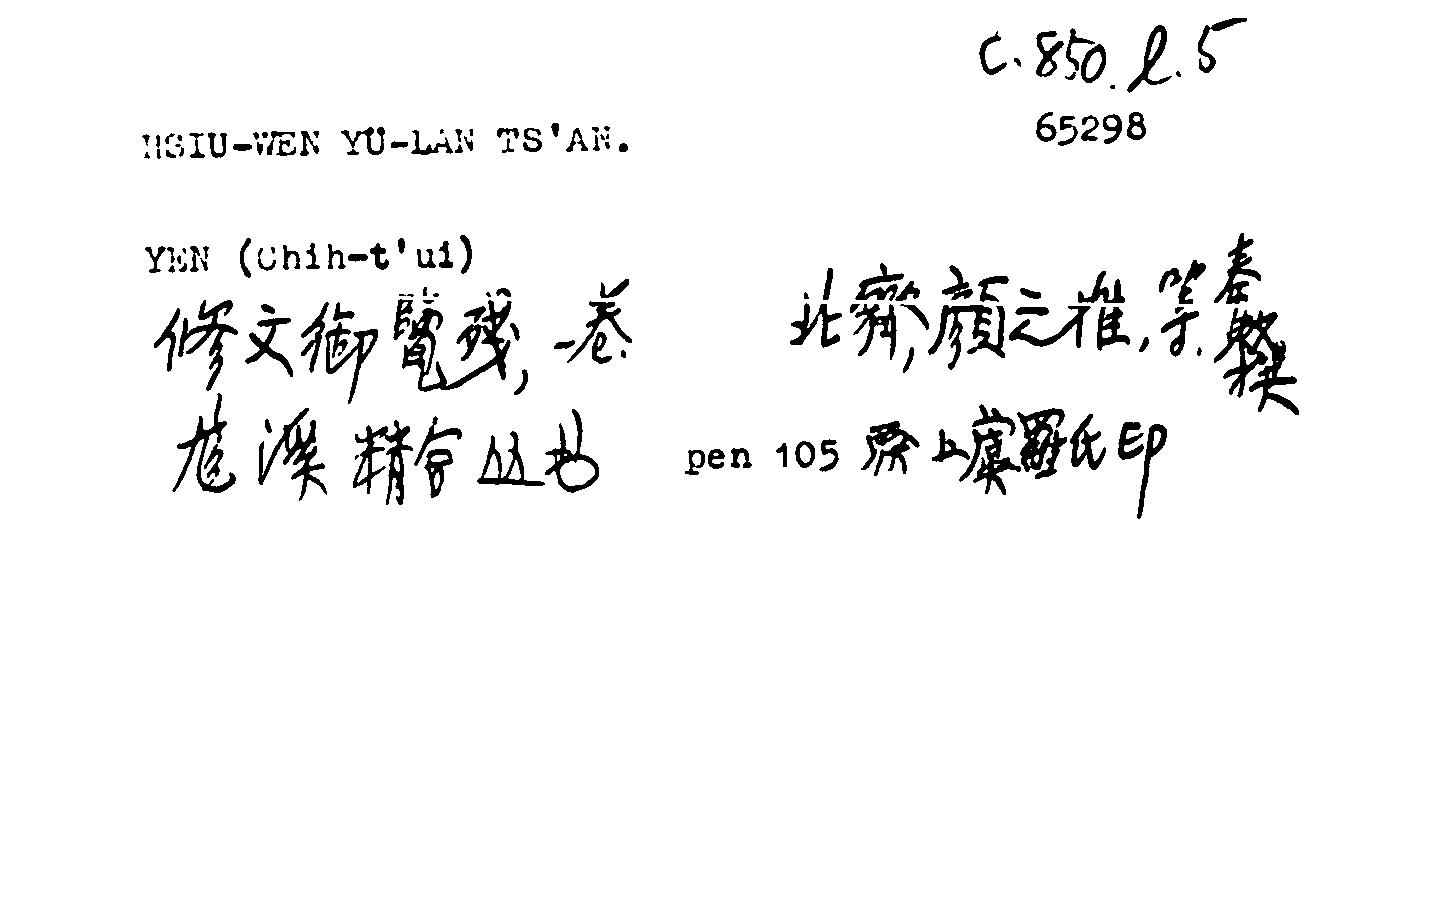 C.850.l.5
65298
HSIU-WEN YÜ-LAN TS'AN.
YEN (Chih-t'ui)
修文御覽殘,一卷. 北齊,顏之推,等.奉敕撰
pen 105 上虞羅氏印